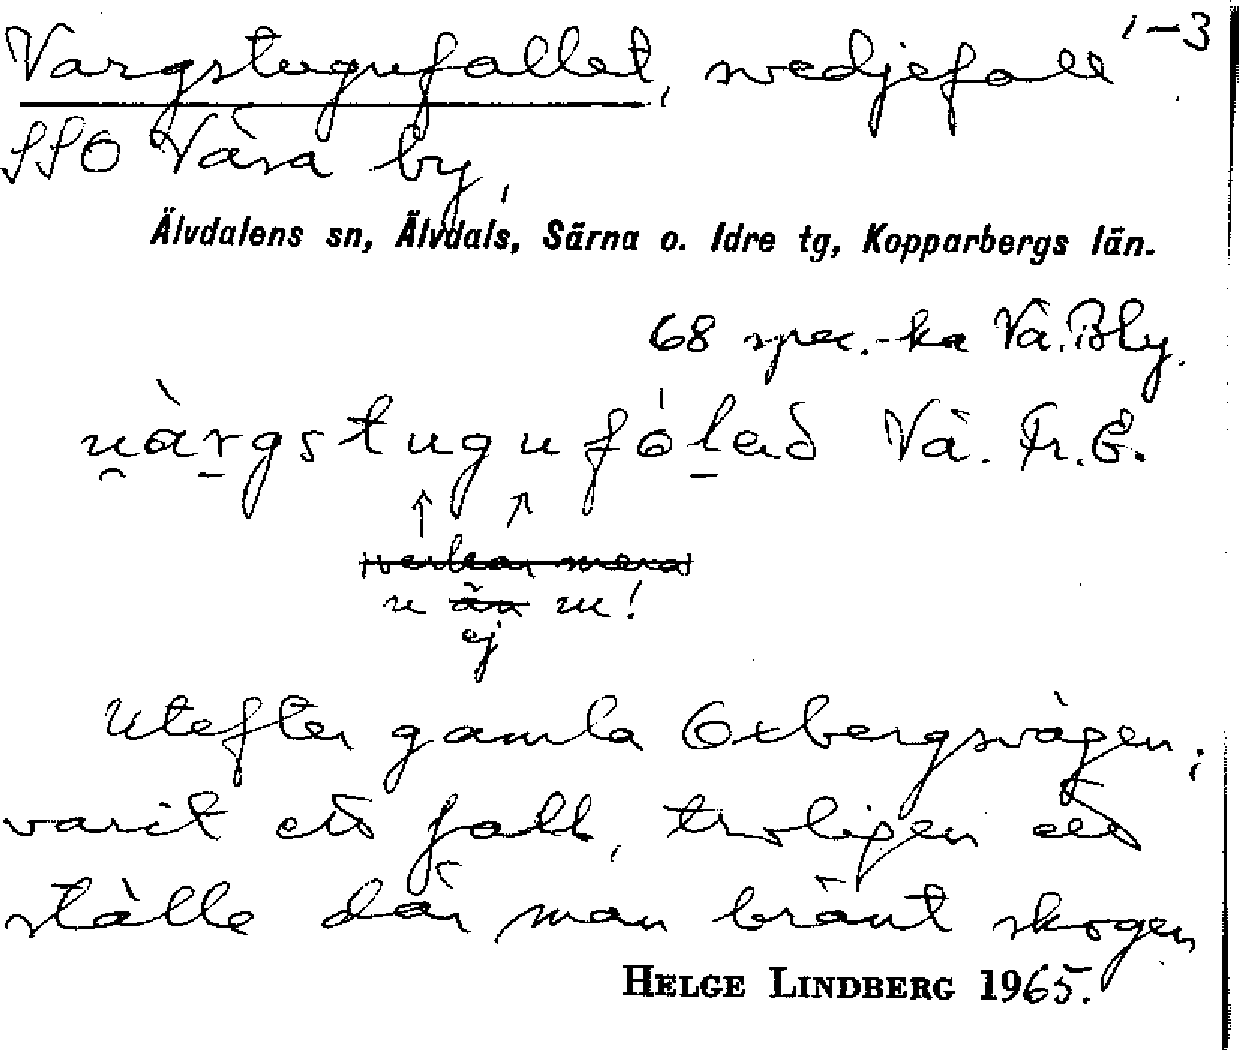 1-3
Vargstugufallet, svedjefall
SSO Våsa by,
Älvdalens sn, Älvdals, Särna o. Idre tg, Kopparbergs län.
68 spec.-ka Vå. Bly.
u̯àr̠gstugufól̠að Vå. Fr. E.
↑ ↗
verkar mera
u än ɯ!
ej
Utefter gamla Oxbergsvägen;
varit ett fall, troligen ett
ställe där man bränt skogen
HELGE LINDBERG 1965.